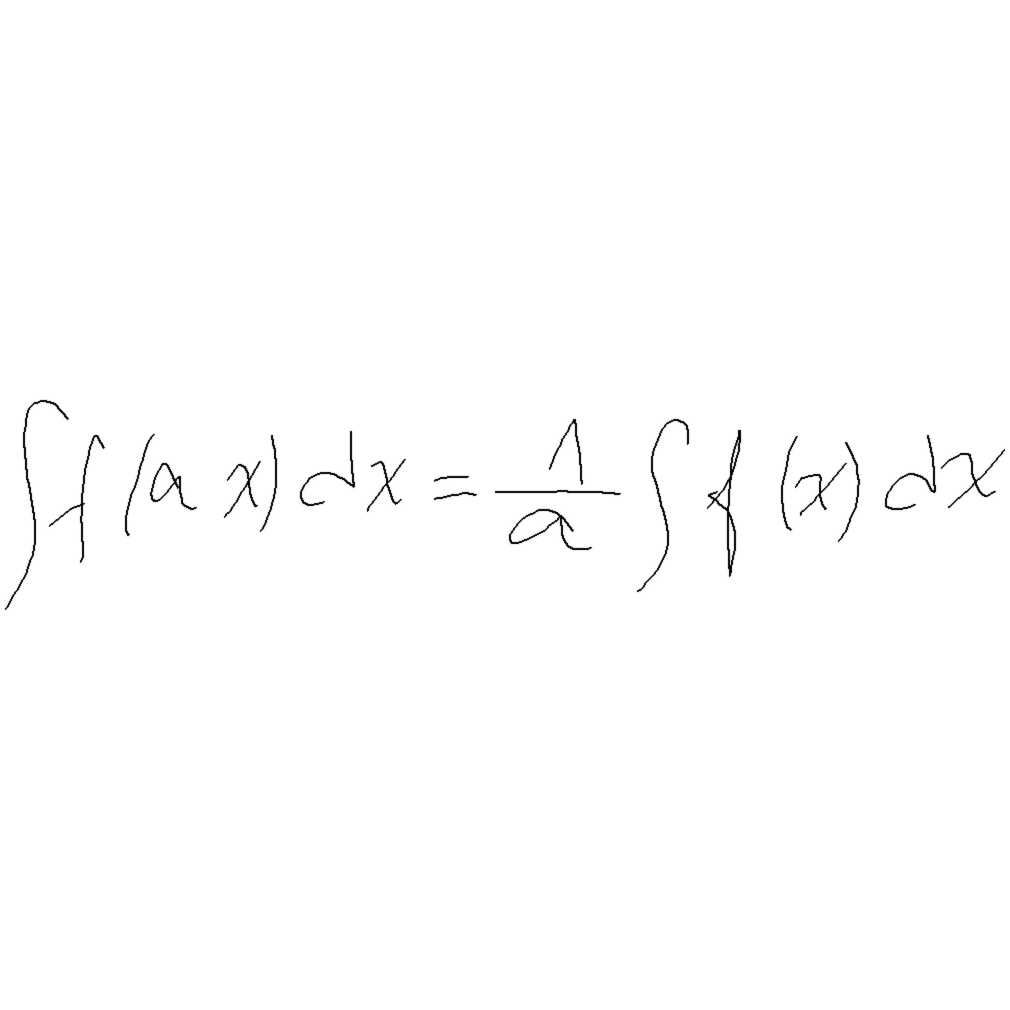 ∫f(ax)dx = 1/a ∫f(x)dx